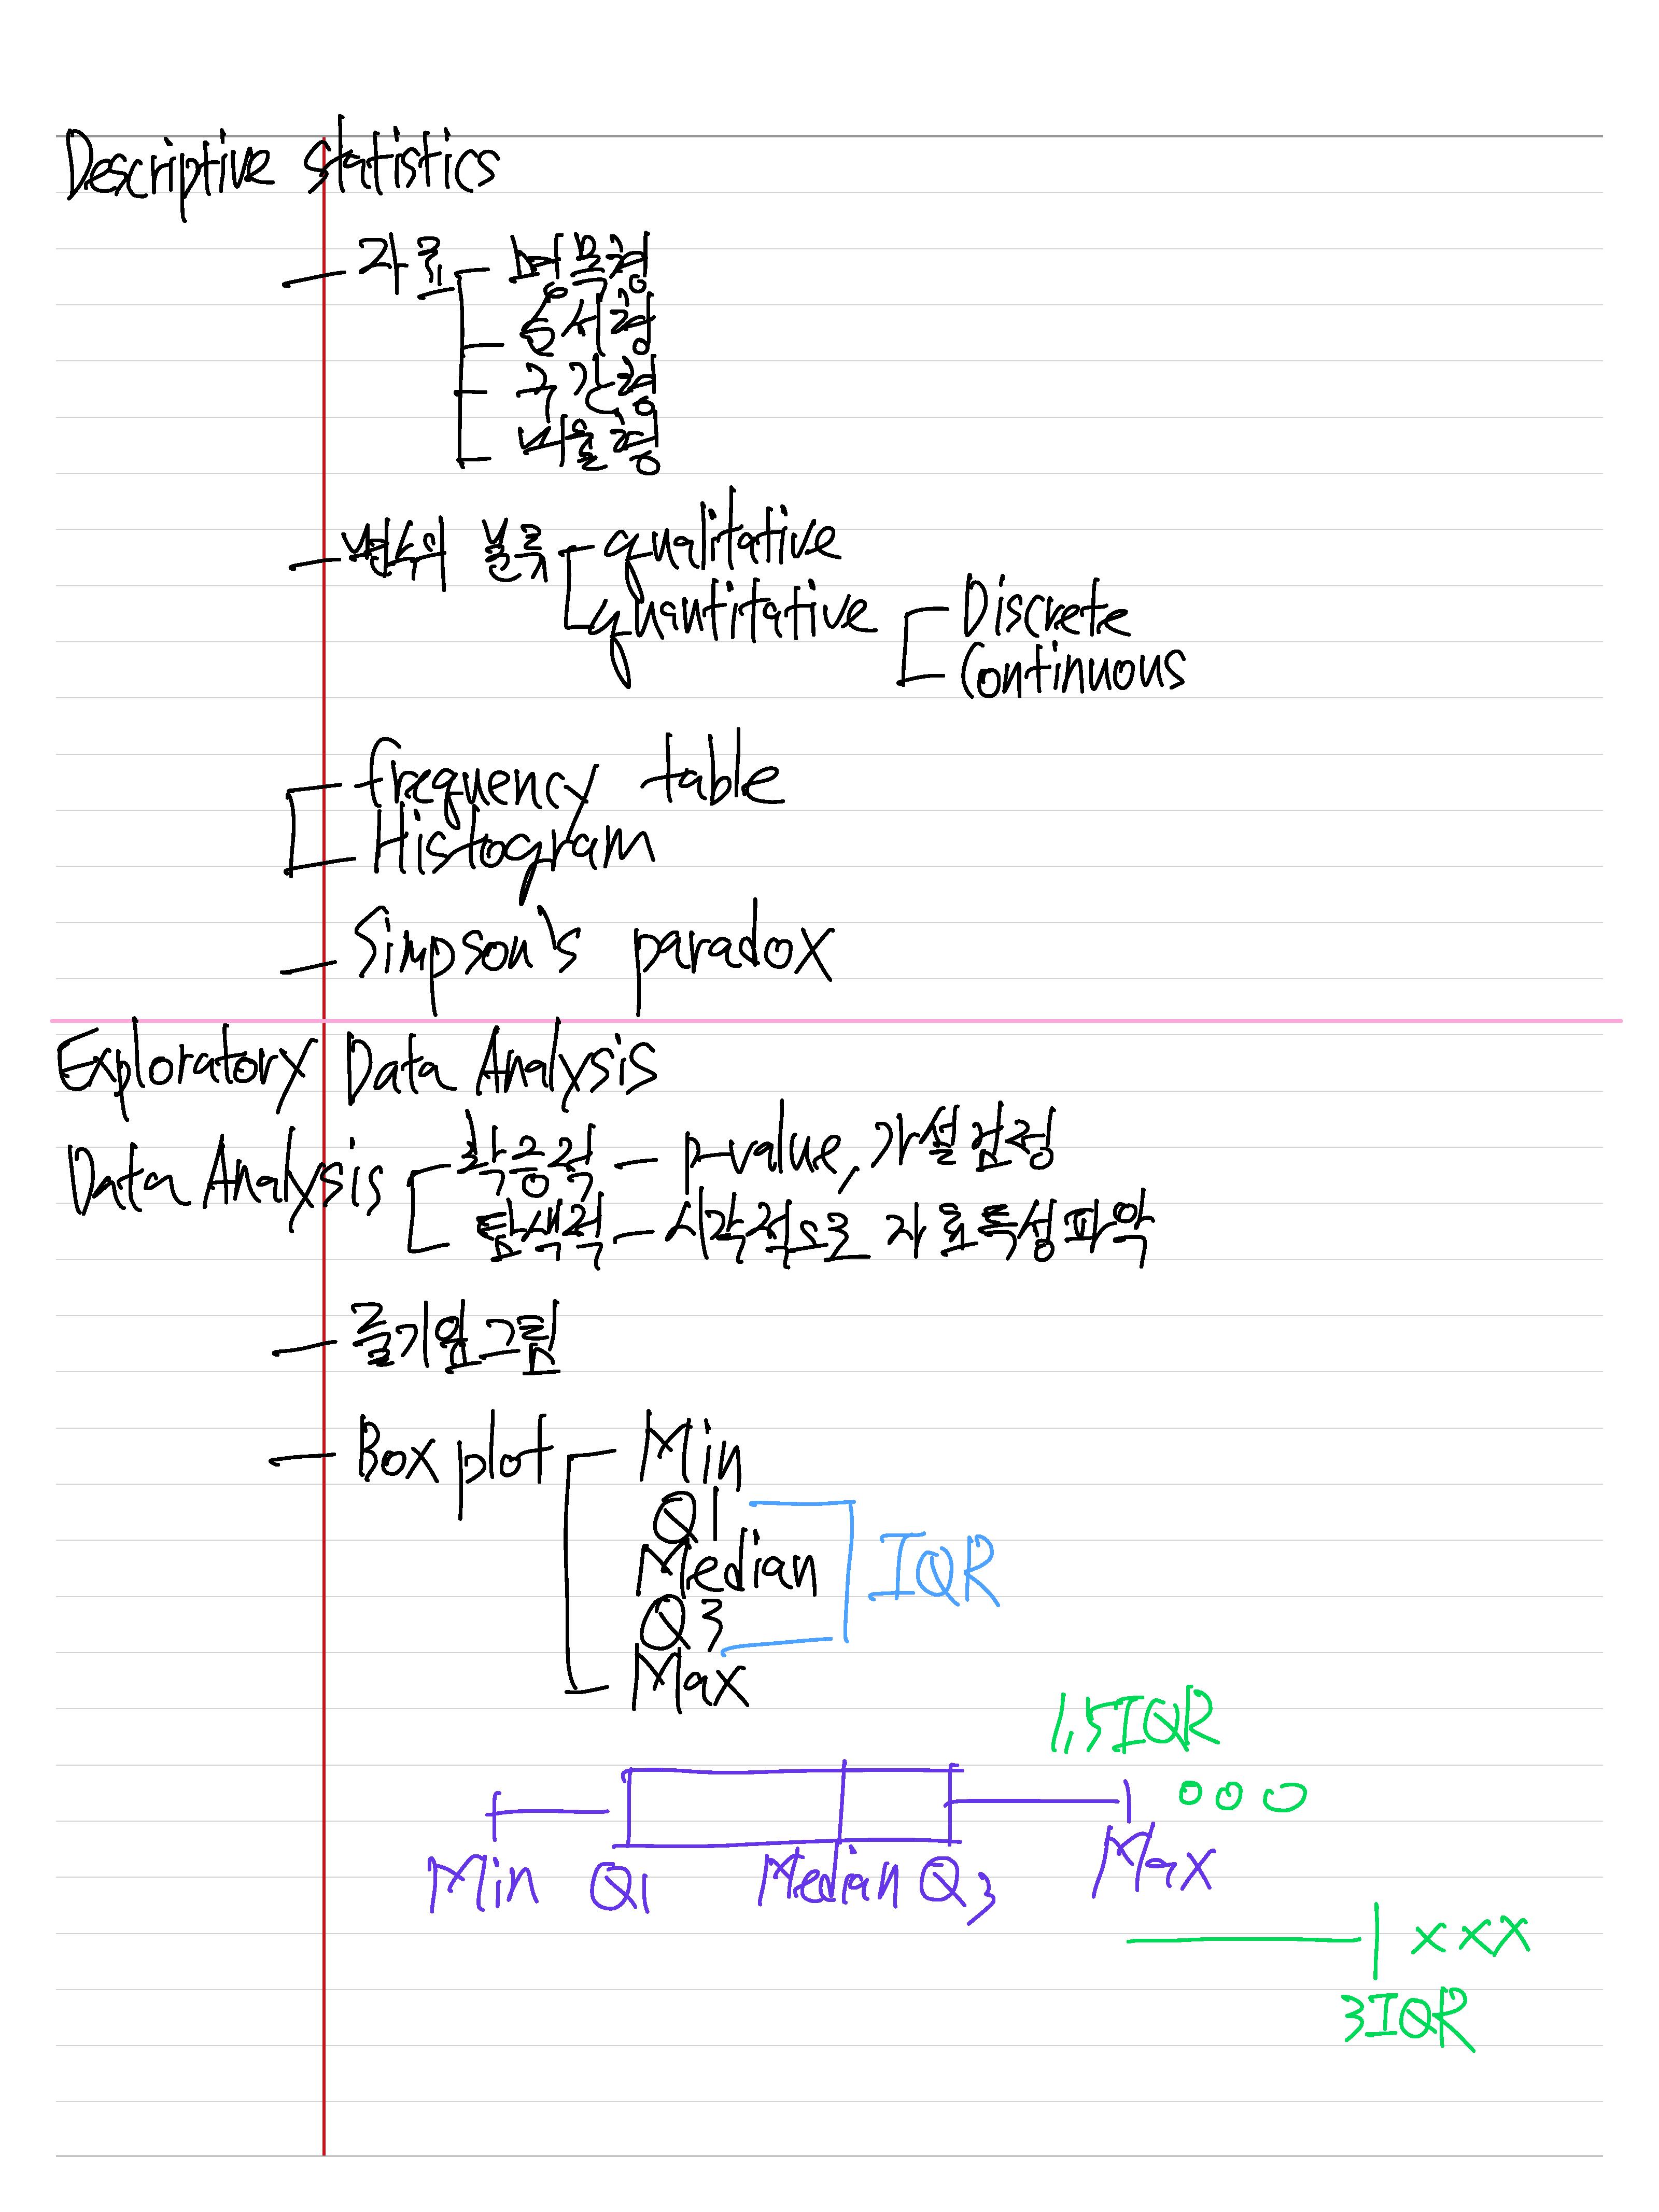 Descriptive Statistics
자료 명목형
순서형
구간형
비율형
변수의 분류 qualitative
quantitative Discrete
Continuous
frequency table
Histogram
Simpson's paradox
Exploratory Data Analysis
Data Analysis 확증적 - p-value, 가설검정
탐색적 - 시각적으로 자료특성파악
줄기잎그림
Box plot Min
Q1
Median IQR
Q3
Max
1.5IQR
Min Q1 Median Q3 Max
xxx
3IQR